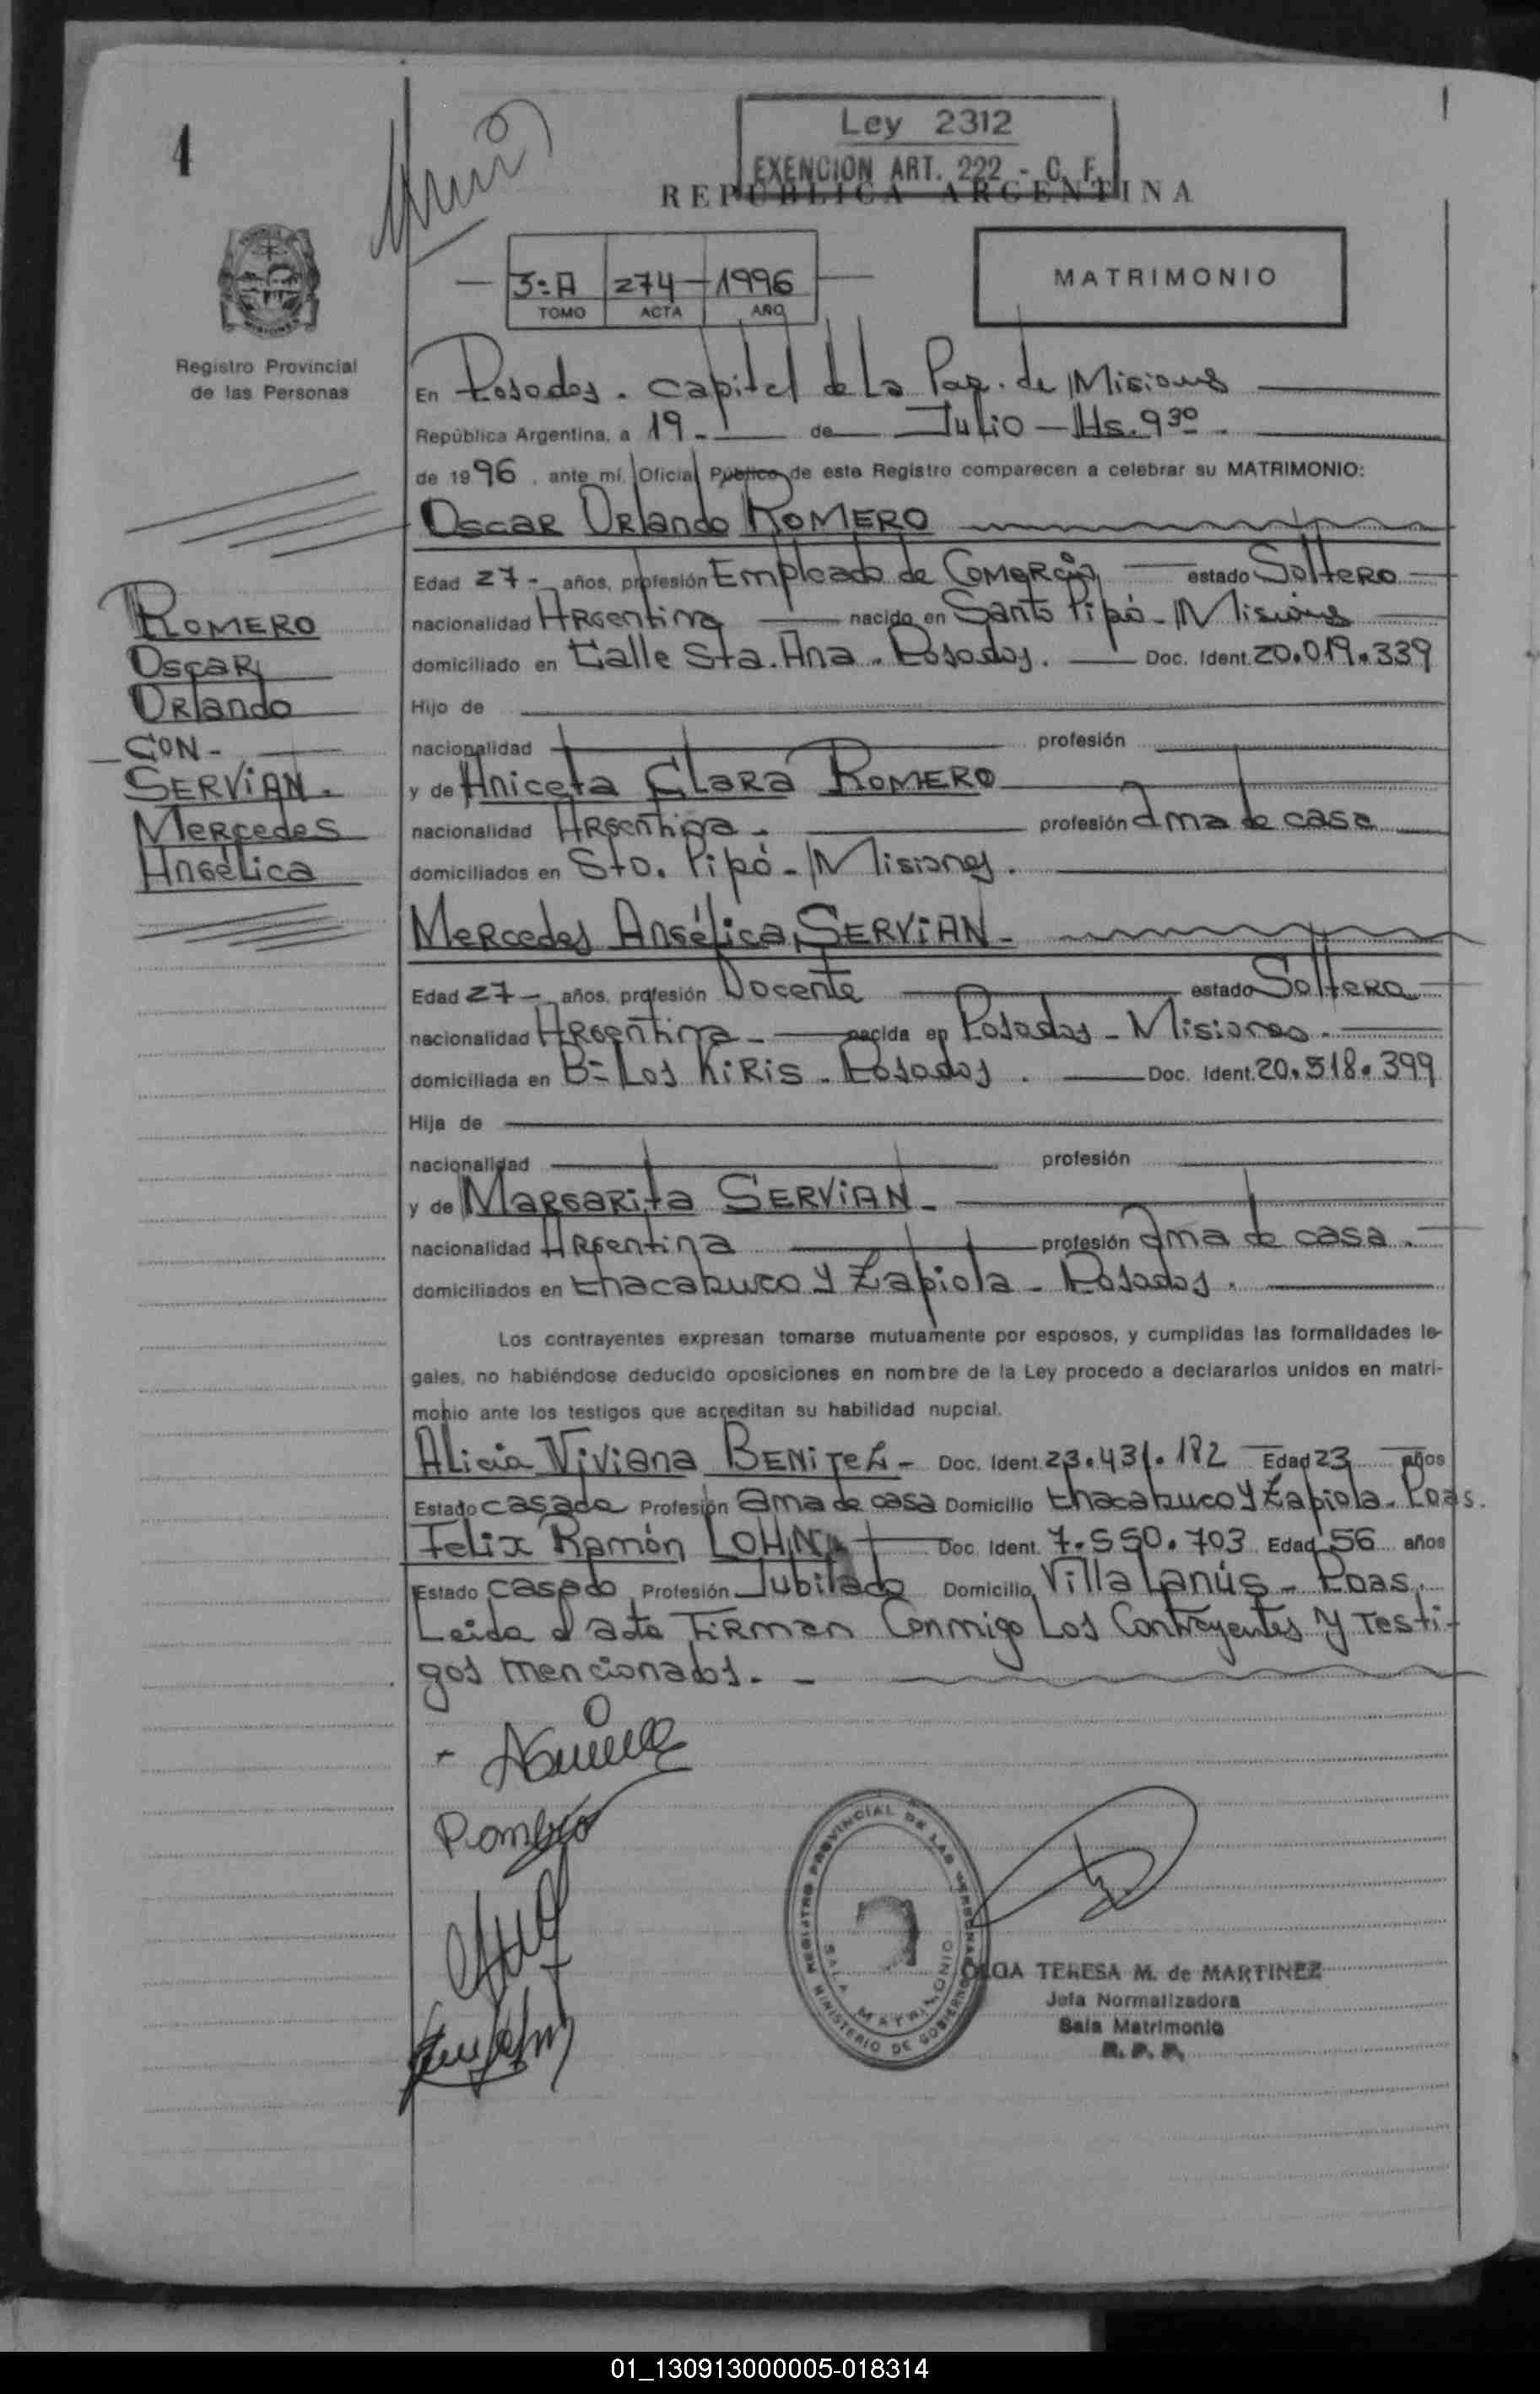 4
Ley 2312
EXENCION ART. 222 - C. F.
REPUBLICA ARGENTINA
3:A 274 1996
TOMO ACTA AÑO
MATRIMONIO
Registro Provincial
de las Personas
En Posadas. capital de La Pag. de Misiones
República Argentina, a 19 - de Julio - Hs. 9 30.
de 1996, ante mí, Oficial Público de este Registro comparecen a celebrar su MATRIMONIO:
Oscar Orlando ROMERO
Edad 27- años, profesión Empleado de Comercio estado Soltero
nacionalidad Argentina nacido en Santo Pipó - Misiones
domiciliado en Calle Sta. Ana - Posadas. Doc. Ident. 20.019.339
Hijo de
nacionalidad profesión
y de Aniceta Clara ROMERO
nacionalidad Argentina - profesión ama de casa
domiciliados en Sto. Pipó - Misiones.
ROMERO
Oscar
Orlando
CON -
SERVIAN -
Mercedes
Angélica
Mercedes Angélica SERVIAN -
Edad 27- años, profesión Docente estado Soltera
nacionalidad Argentina - nacida en Posadas - Misiones.
domiciliada en B= Los Kiris - Posadas. Doc. Ident. 20.518.399
Hija de
nacionalidad profesión
y de Margarita SERVIAN -
nacionalidad Argentina profesión ama de casa.
domiciliados en Chacabuco y Zapiola - Posadas.
Los contrayentes expresan tomarse mutuamente por esposos, y cumplidas las formalidades le-
gales, no habiéndose deducido oposiciones en nombre de la Ley procedo a declararlos unidos en matri-
monio ante los testigos que acreditan su habilidad nupcial.
Alicia Viviana BENITEZ - Doc. Ident. 23.431.182 Edad 23 años
Estado casada Profesión ama de casa Domicilio Chacabuco y Zapiola - Poas.
Felix Ramón LOHN Doc. Ident. 7.550.703 Edad 56 años
Estado casado Profesión Jubilado Domicilio Villa Lanús - Poas.
Leida el acta Firman Conmigo Los Contrayentes y Testi-
gos mencionados. -
Romero
REGISTRO PROVINCIAL DE LAS PERSONAS
SALA MATRIMONIO
MINISTERIO DE GOBIERNO
OLGA TERESA M. de MARTINEZ
Jefa Normalizadora
Sala Matrimonio
R. P. P.
01_130913000005-018314